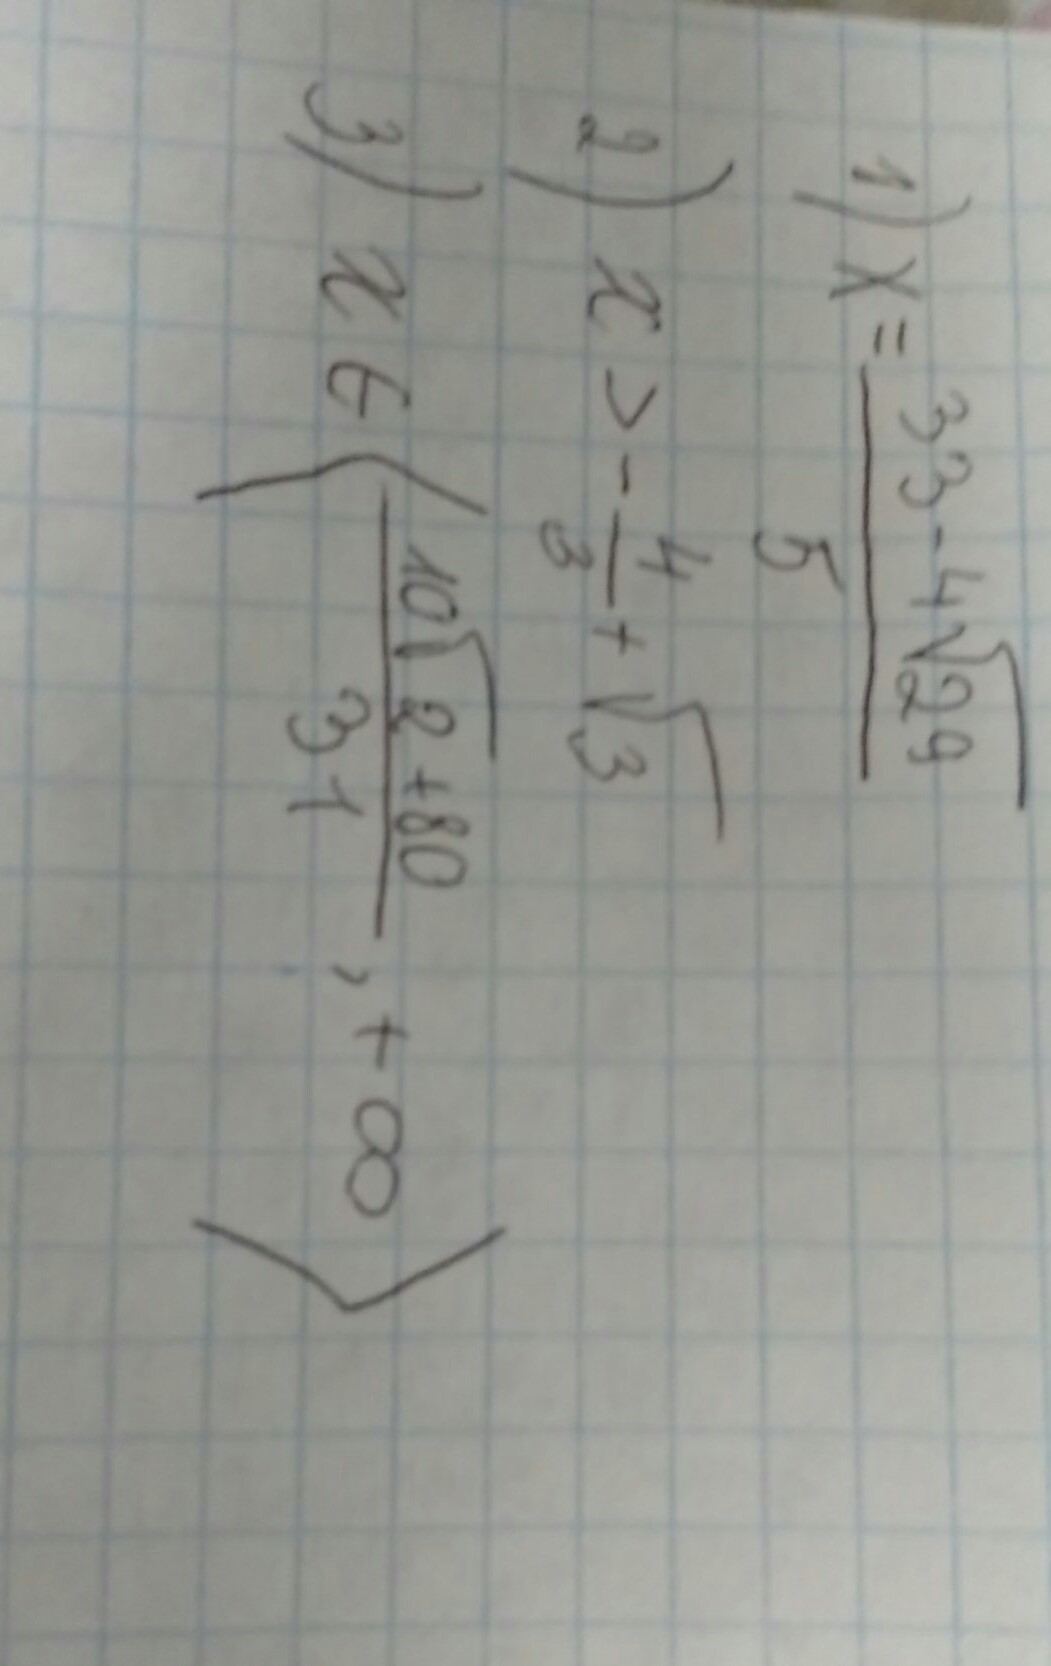 1) x = (33 - 4√29)/5
2) x > -4/3 + √3
3) x ∈ ⟨(10√2 + 80)/31, +∞⟩